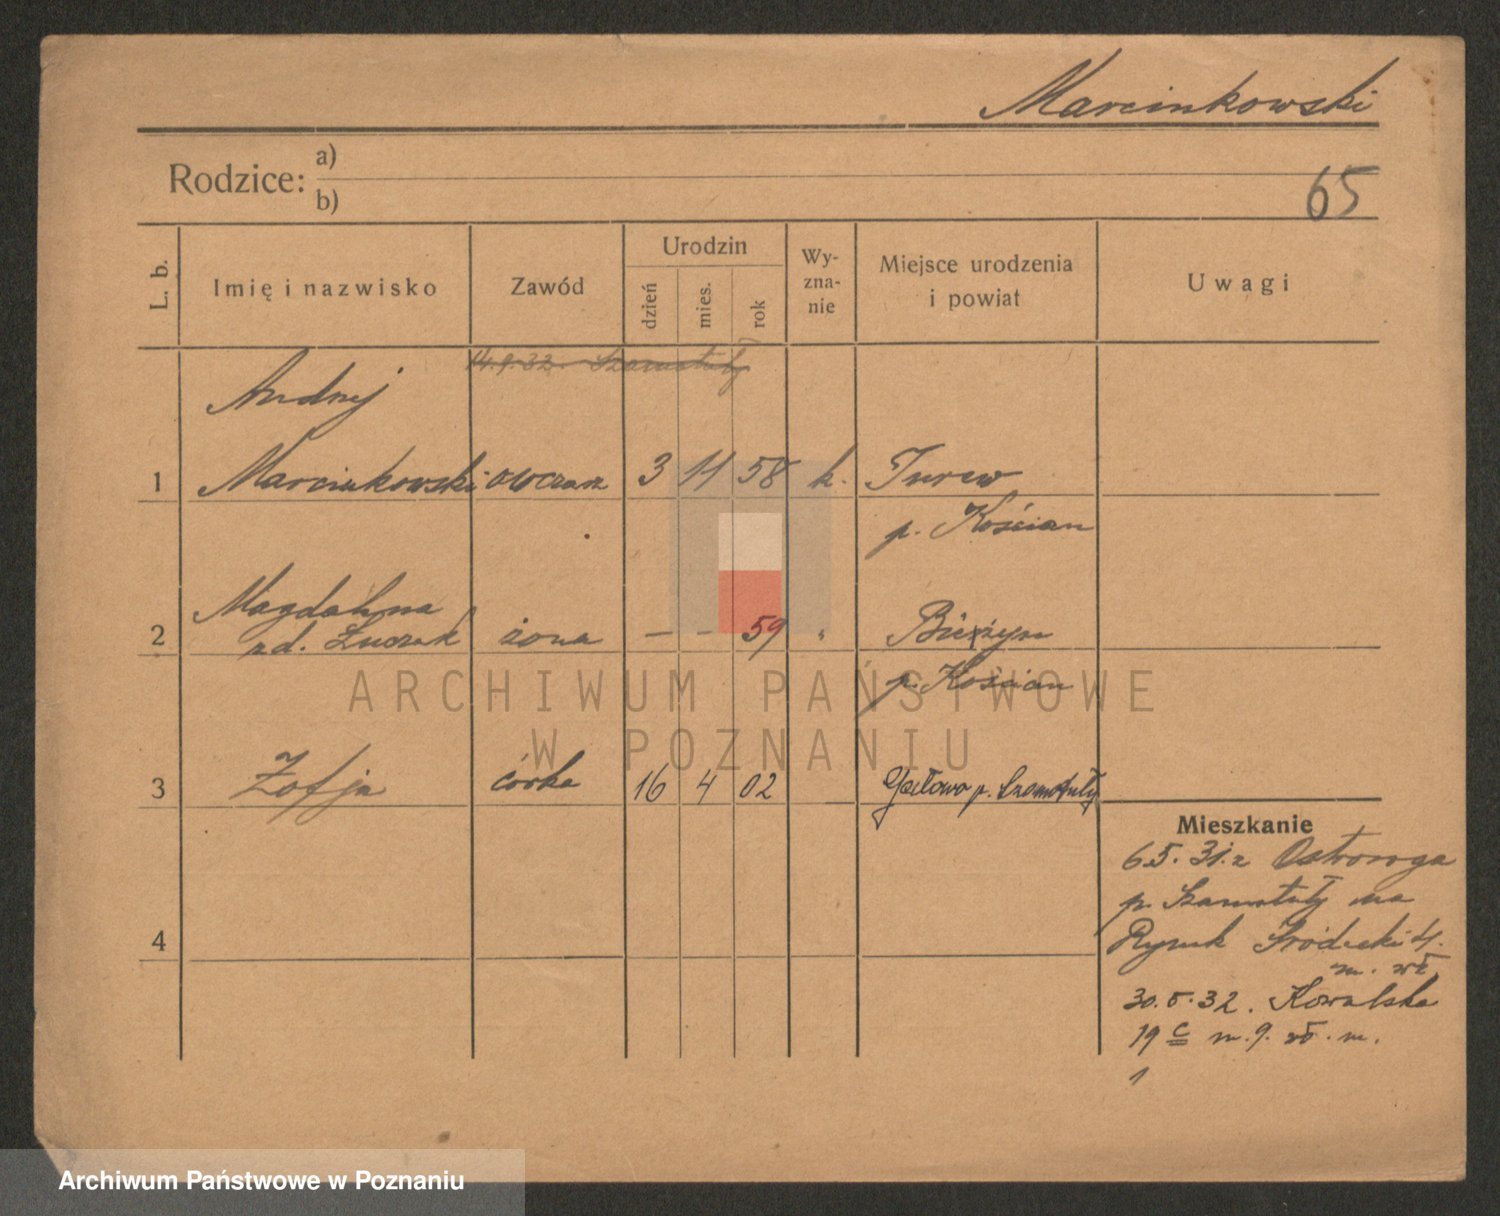 Marcinkowski
Rodzice: a)
b)
65
L. b.
Imię i nazwisko
Zawód
Urodzin
dzień
mies.
rok
Wy-
zna-
nie
Miejsce urodzenia
i powiat
Uwagi
14.9.32. Szamotuły
Andrzej
1 Marcinkowski owczarz 3 11 58 k. Turew
p. Kościan
Magdalena
2 zd. Łuczak żona — - 59 " Bieżyn
p. Kościan
3 Zofja córka 16 4 02 p. Szamotuły
4
Mieszkanie
6.5.31. z Ostroroga
p. Szamotuły na
Rynek Gródecki 4.
m. wł.
30.5.32. Kowalska
19 c m. 9. wł. m.
1
ARCHIWUM PAŃSTWOWE
W POZNANIU
Archiwum Państwowe w Poznaniu